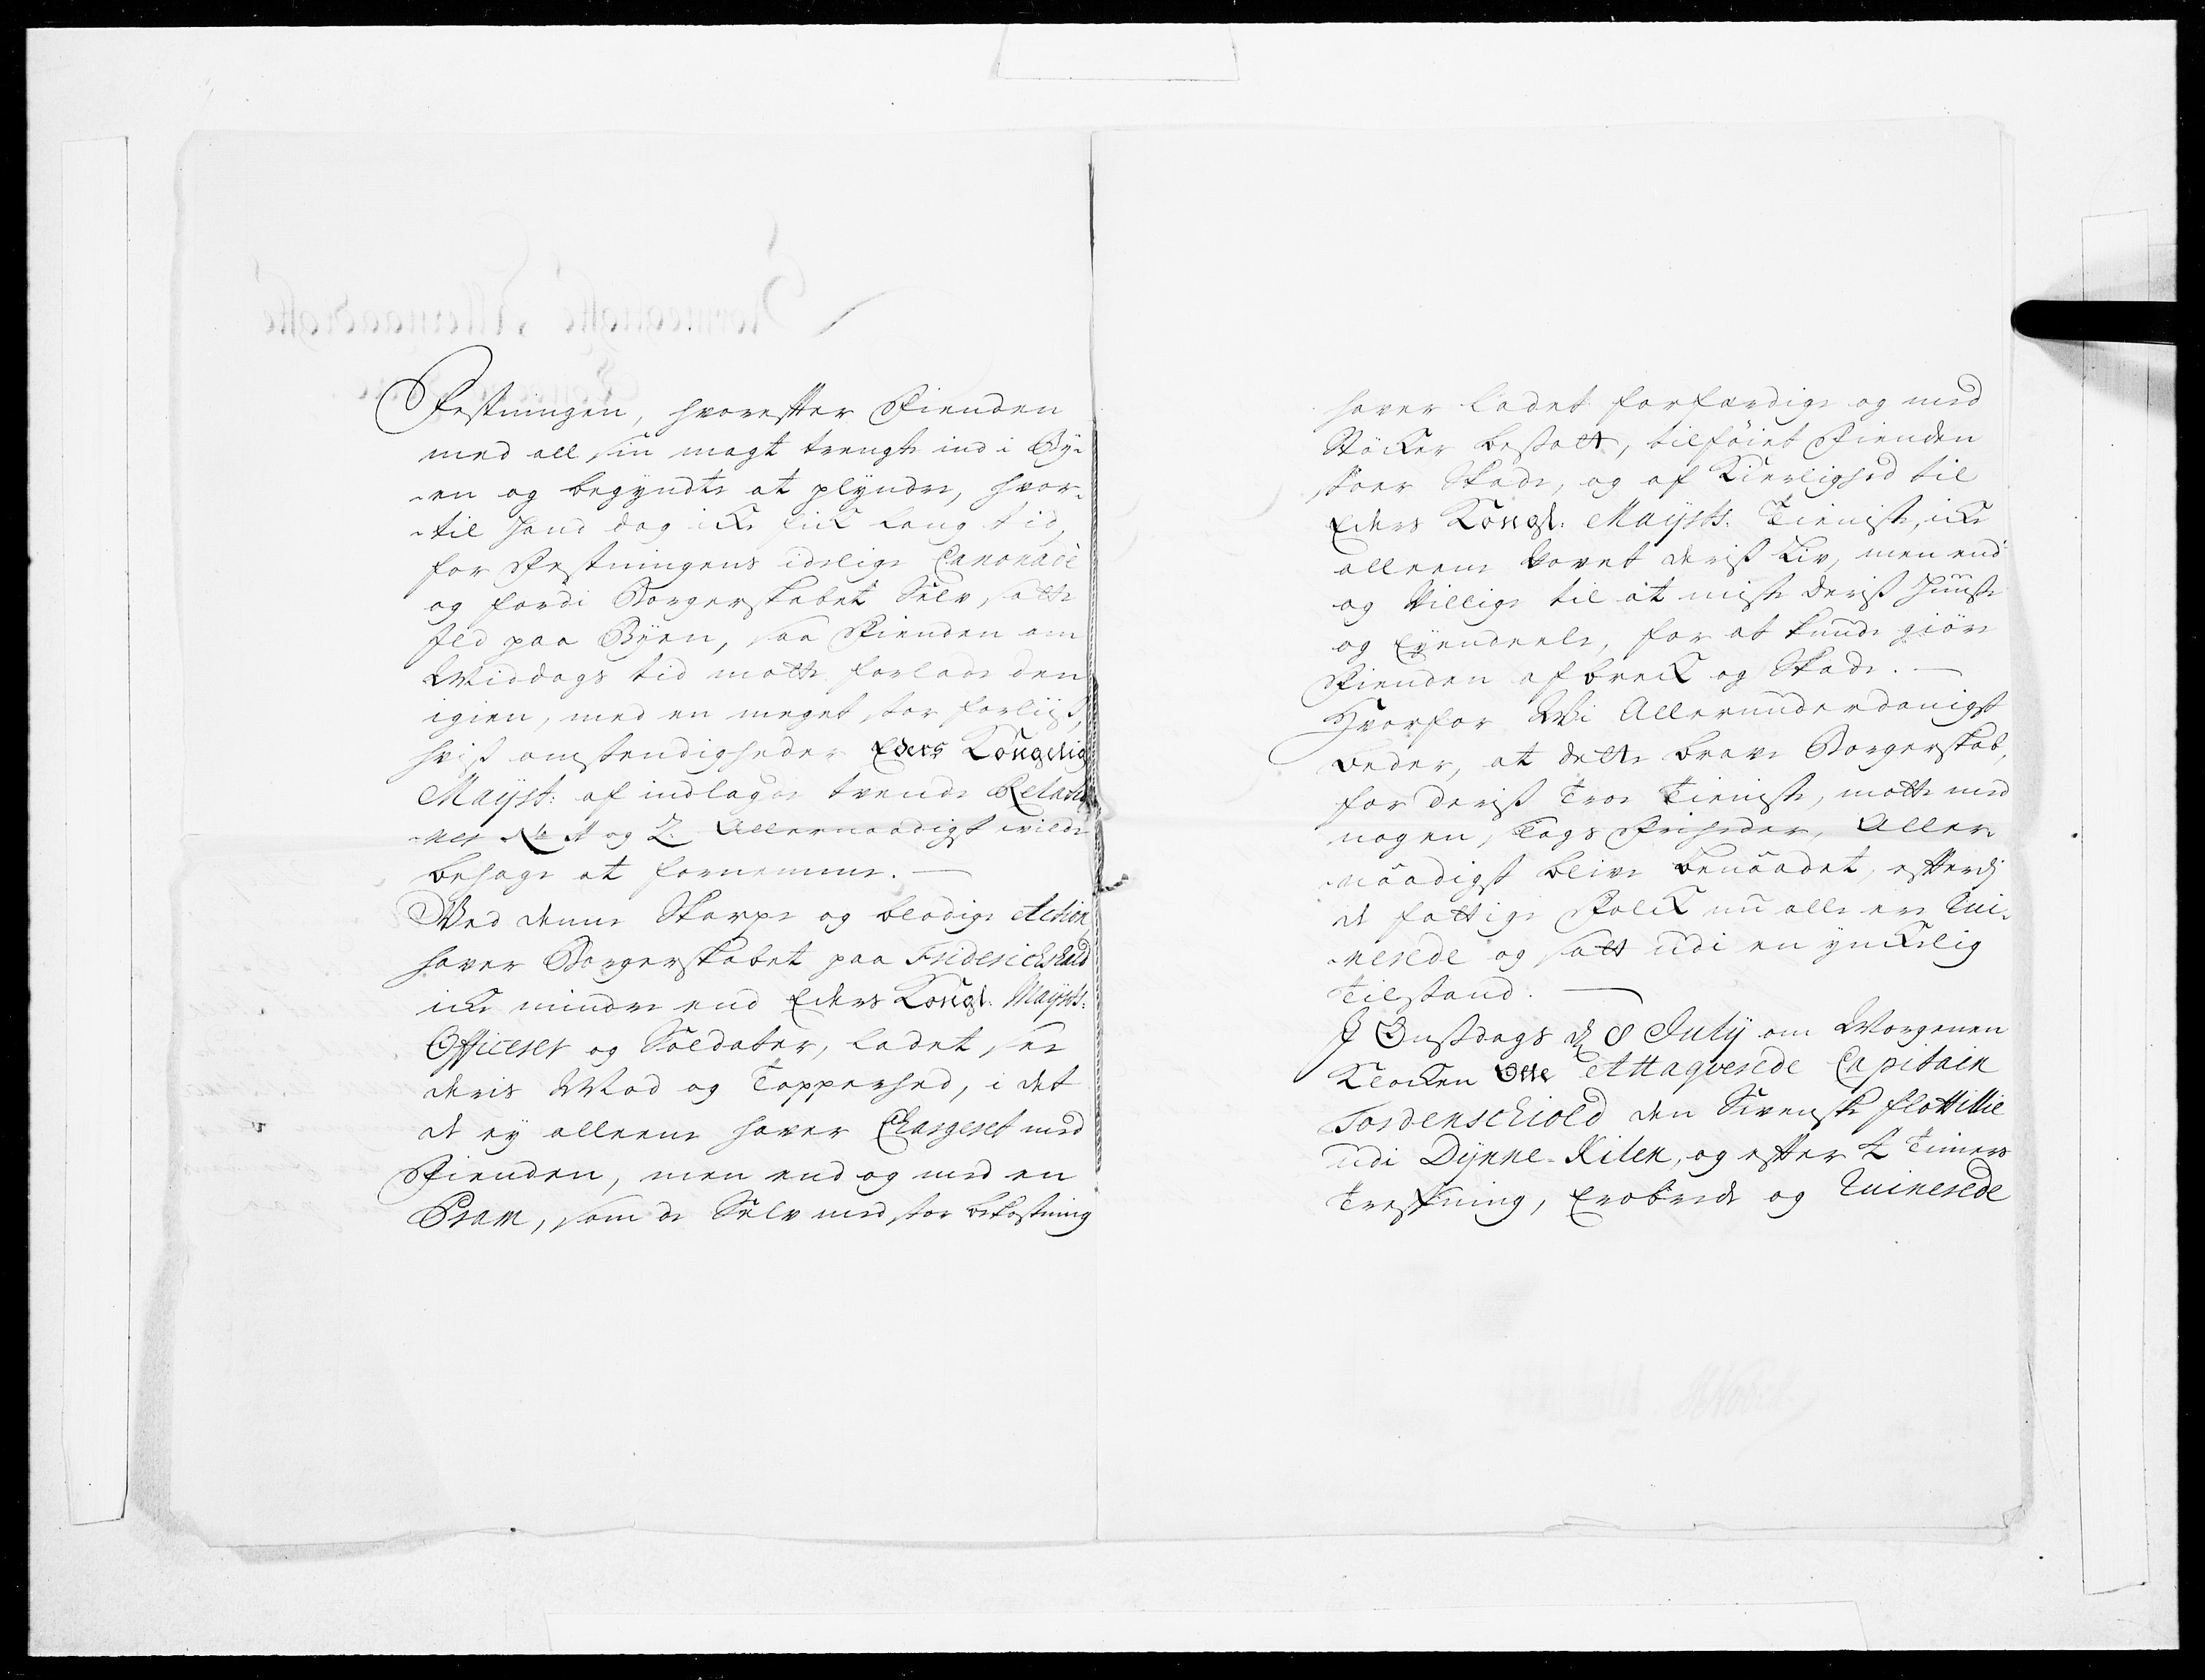 Festningen, hvorefter Fienden
med all sin magt trengte ind i By-
-en og begyndte at plyndre, hvor-
-til hand dog icke fick lang tid,
for Festningens idelige Canonade
og fordi Borgerskabet Selv satte
Ild paa Byen, saa Fienden om
Middags tid motte forlade den
igien, med en meget stor forliist,
hviss omstendigheder Eders Kongelig
Mayst: af indlagde tvende Relatio-
-ner No A og Z. Allernaadigst wilde
behage at fornemme. —
Wed denne Skarpe og blodige Action,
haver Borgerskabet paa Friderichshald
icke mindre end Eders Kongl. Maysts.
Officerer og Soldater, ladet see
deris Mod og Tapperhed, i det
de ey alleene haver Chargeret med
Fienden, men end og med en
Pram, som de Selv med stor bekostning
haver ladet forfærdige og med
Støcker besatt, tilføiet Fienden
stoer Skade, og af Kierlighed til
Eders Kongl. Maysts. Tieniste, icke
alleene vovet deriss Liv, men end
og Villige til at miste deriss Huuse
og Eyendeele, for at kunde giøre
Fienden afbreck og Skade. —
Hvorfor Wi Allerunderdanigst
beder, at dette brave Borgerskab,
for deriss Troe Tieniste, motte med
nogen Slags Friheder, Aller-
-naadigst blive benaadet, efterdj
de fattige Folck nu alle ere Rui-
-nerede og satt udi en ynckelig
Tilstand. —
I Onssdags d. 8 July om Morgenen
Klocken Otte Attaqverede Capitain
Tordenschiold den Svenske flottillie
udi Dynne-Kilen, og efter 4 Timers
Trefning, Erobrede og Ruinerede